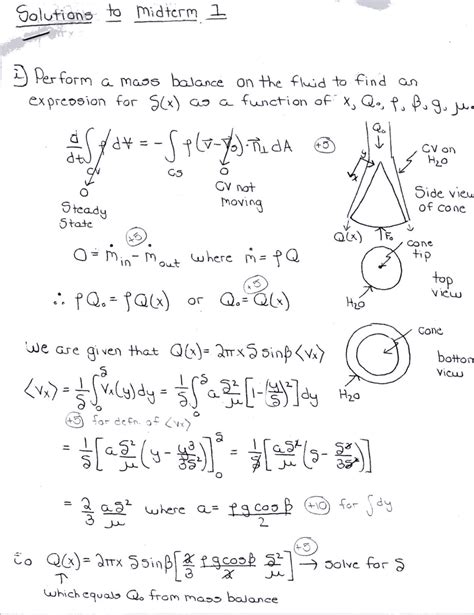 Solutions to Midterm 1
1) Perform a mass balance on the fluid to find an
expression for δ(x) as a function of x, Q₀, ρ, β, g, μ.
d/dt ∫ ρ dV = - ∫ ρ(v⃗ - v⃗ₛ)·n⃗ dA (+5)
CV CS
0 0
Steady State
CV not moving
Q₀
CV on H₂O
y
x
Side view of cone
Q(x) ↑F₀
(+5)
0 = ṁin - ṁout where ṁ = ρQ
cone tip
top view
H₂O
(+5)
∴ ρQ₀ = ρQ(x) or Q₀ = Q(x)
cone
bottom view
H₂O
We are given that Q(x) = 2πx δ sinβ <vx>
<vx> = 1/δ ∫₀^δ vx(y)dy = 1/δ ∫₀^δ aδ²/μ [1-(y/δ)²] dy
(+5) for defn. of <vx>
= 1/δ [aδ²/μ (y - y³/3δ²)]₀^δ = 1/δ [aδ²/μ (δ - δ³/3δ²)]
= 2/3 aδ²/μ where a = ρg cosβ/2 (+10) for ∫dy
(+5)
so Q(x) = 2πx δ sinβ [2/3 ρg cosβ/2 δ²/μ] → solve for δ
↑
which equals Q₀ from mass balance